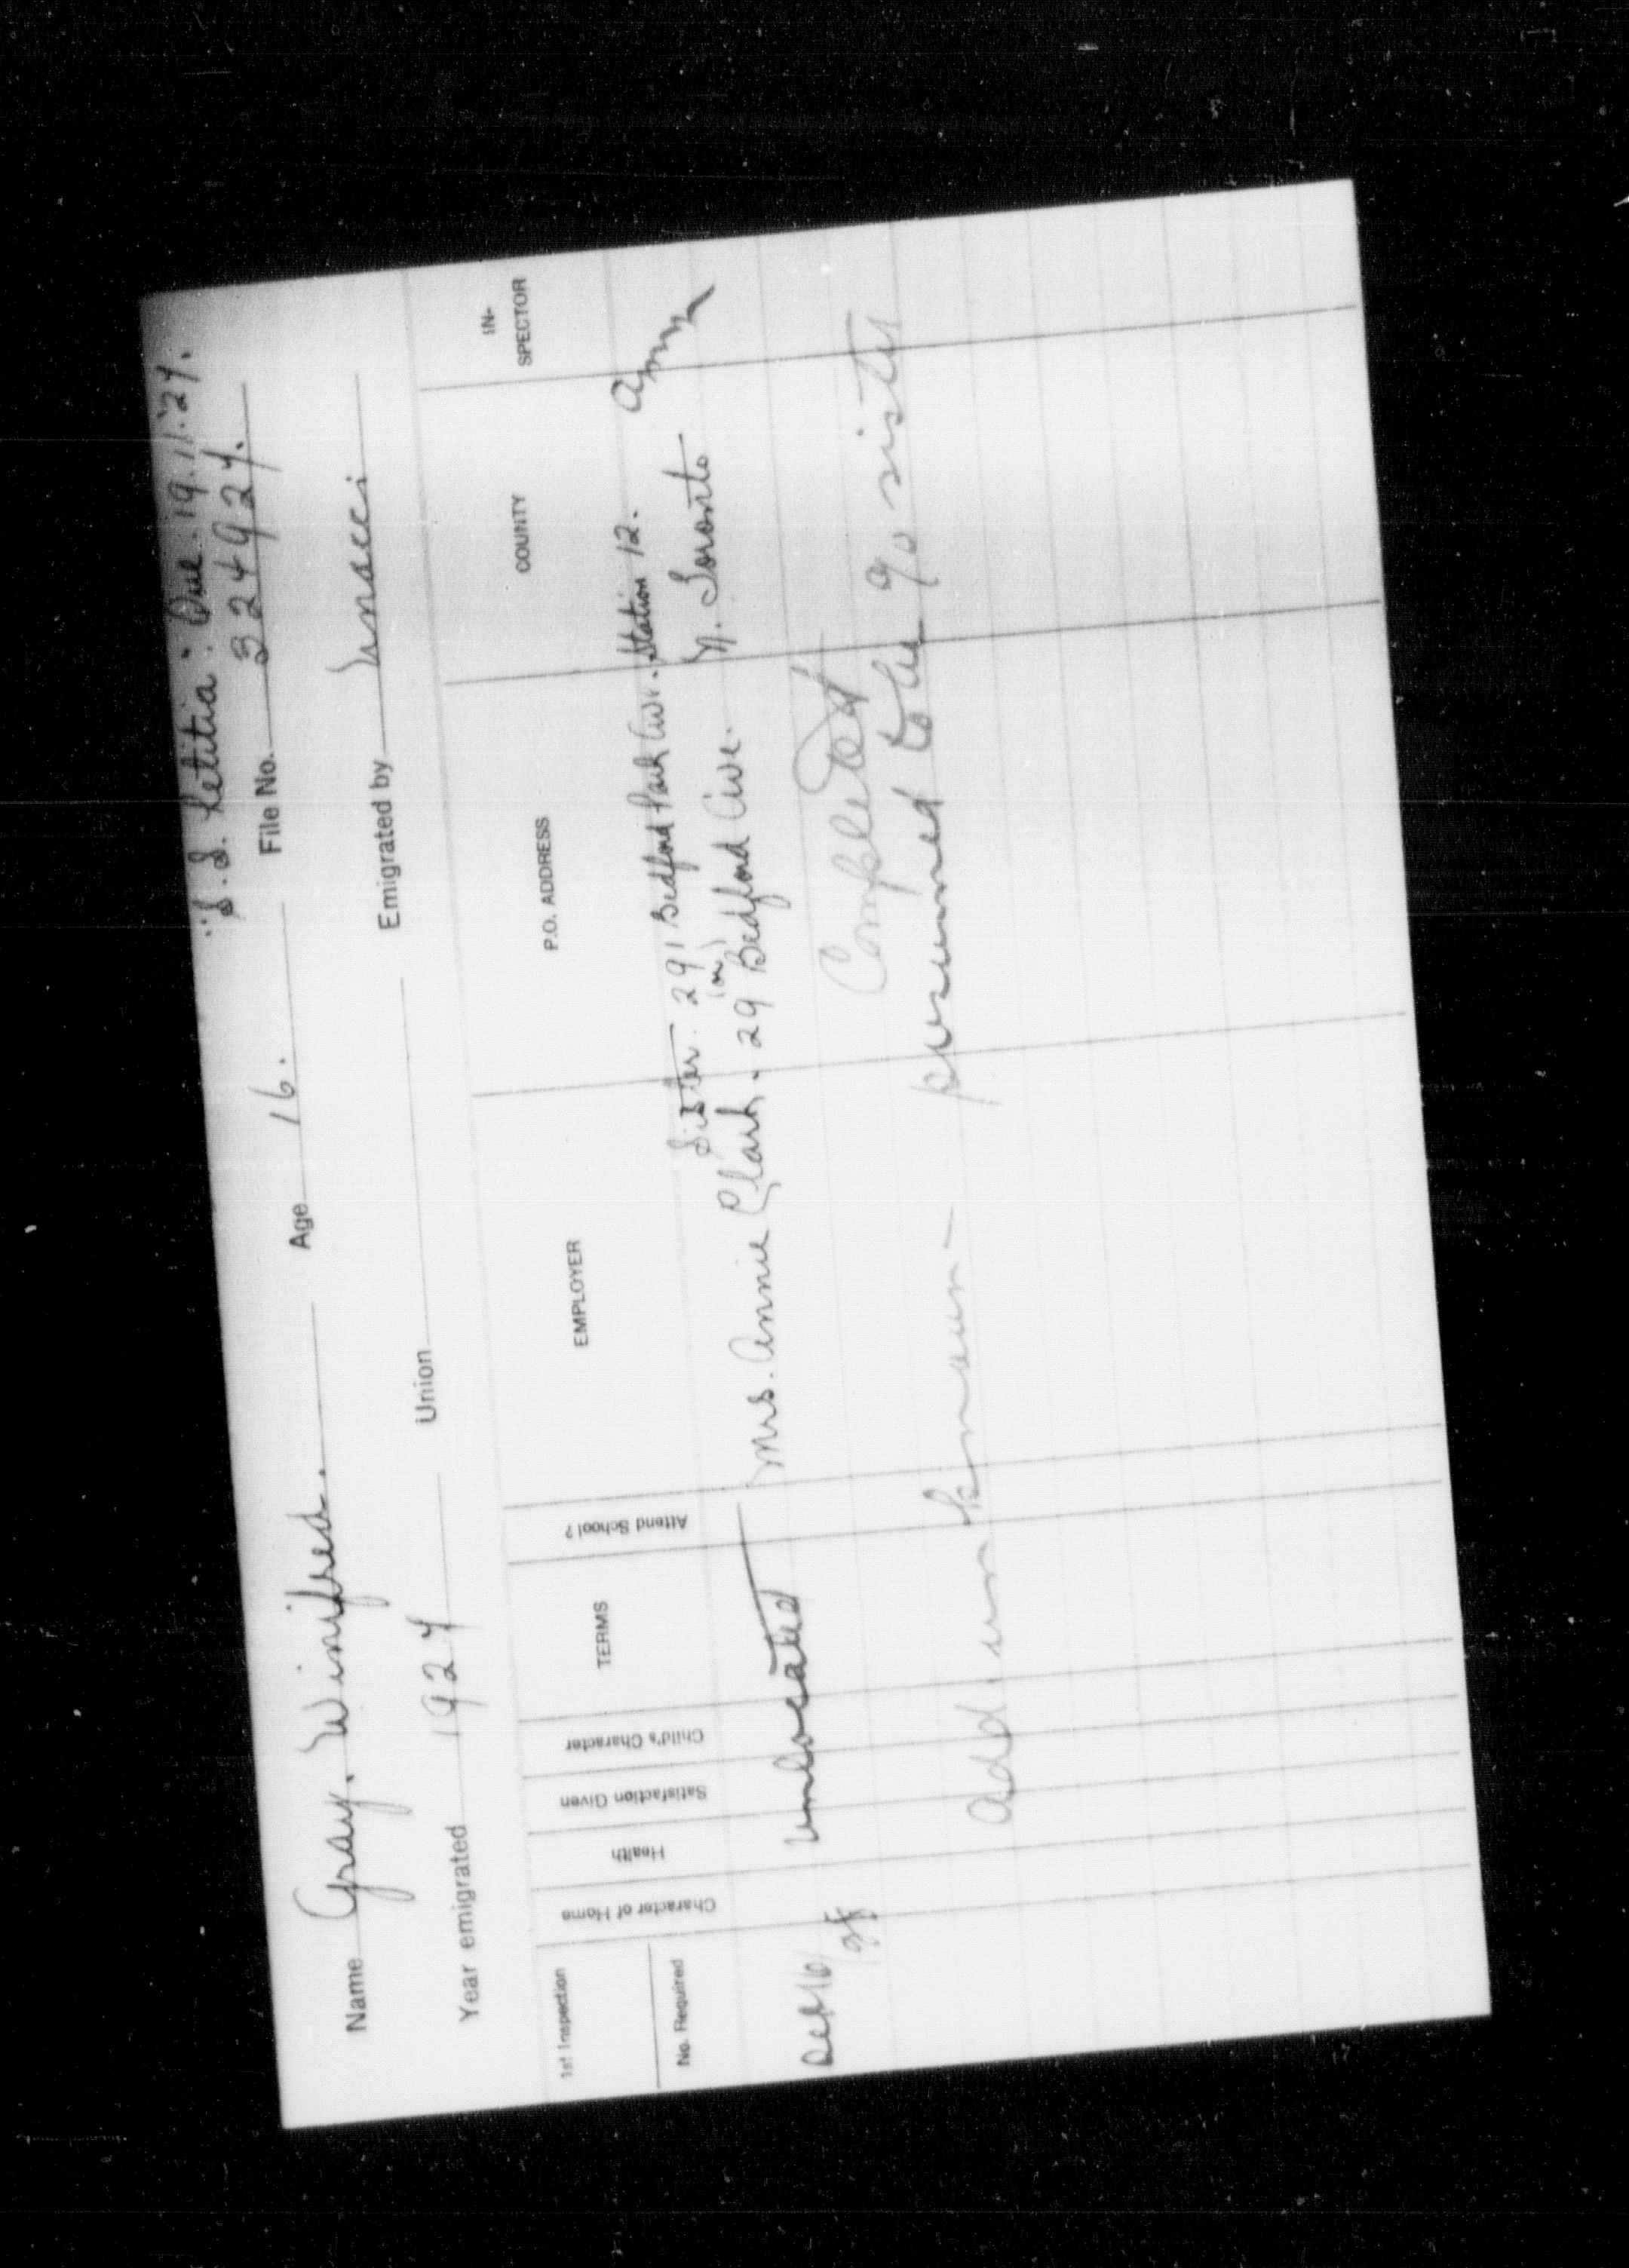 "S.S. Letitia": Due. 19.11.'27.
Name Gray, Winifred. Age 16. File No. 324927.
Year emigrated 1927 Union Emigrated by
1st Inspection
No. Required
Character of Home
Health
Satisfaction Given
Child's Character
TERMS
Attend School?
EMPLOYER
P.O. ADDRESS
COUNTY
IN-
SPECTOR
Sister 291 Bedford Park Ave. Station 12.
(or)
Unlocated Mrs. Annie Clark. 29 Bedford Ave. N. Toronto
Completed
Add unknown - presumed to be c/o sister